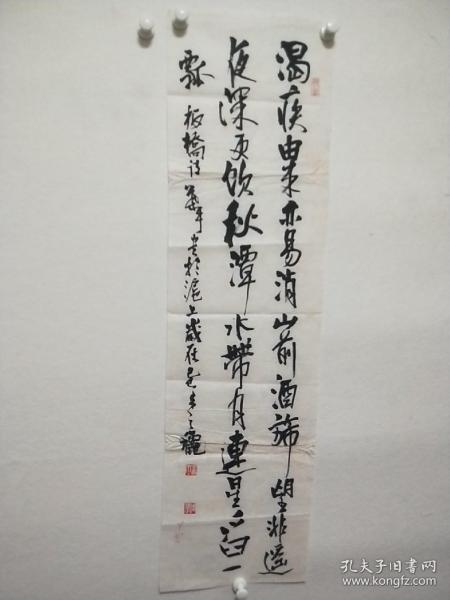 渴疾由来亦易消山前酒旆望非遥
夜深更饮秋潭水带月连星舀一
瓢 板橋诗 华平 书於滬上歲在己
孔夫子旧书网
www.kongfz.com